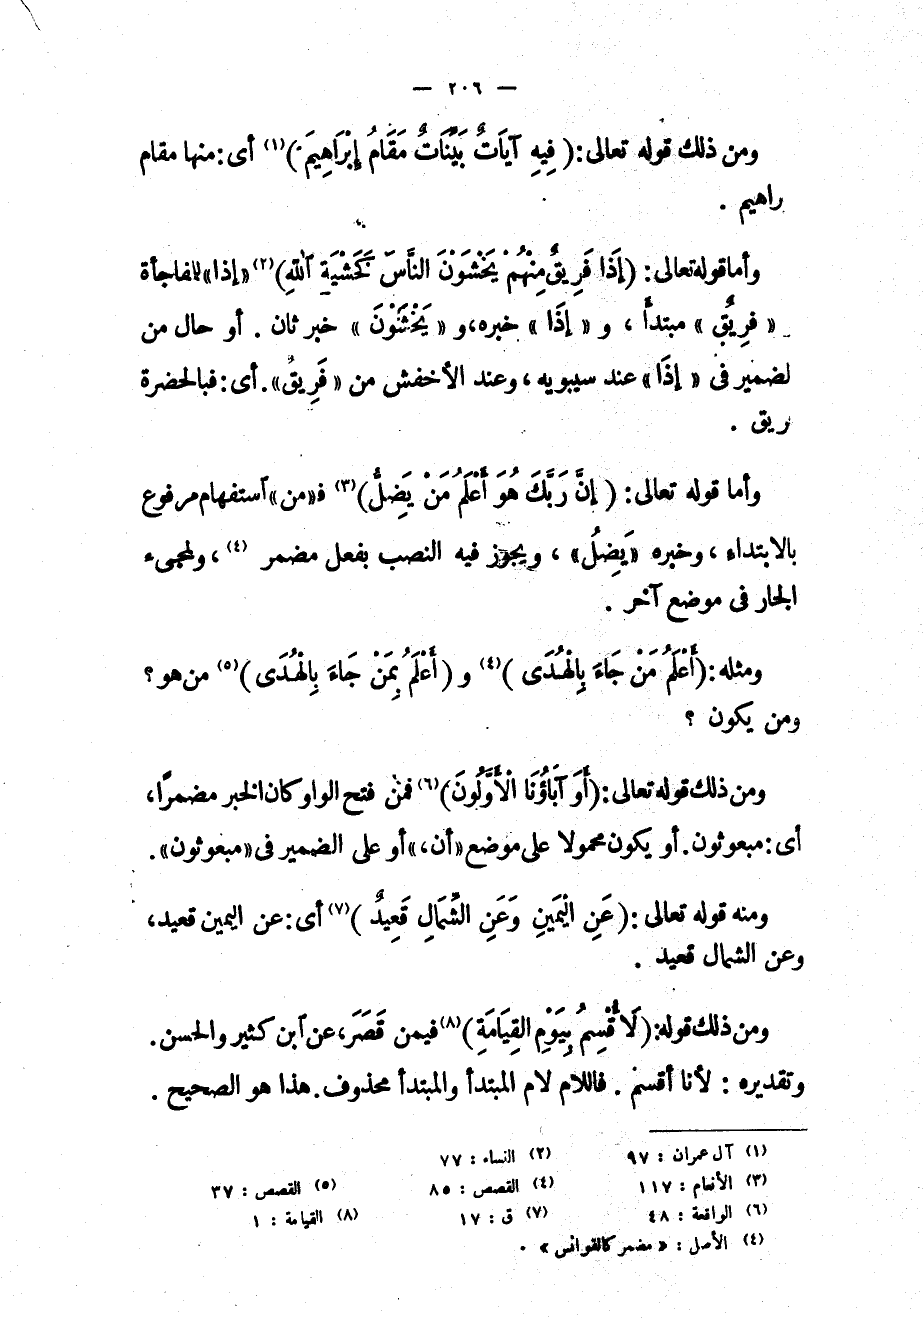 — ٢٠٦ —
ومن ذلك قوله تعالى : ( فِيهِ آيَاتٌ بَيِّنَاتٌ مَقَامُ إِبْرَاهِيمَ ) (١) أى : منها مقام
راهيم .
وأما قوله تعالى : ( إِذَا فَرِيقٌ مِنْهُمْ يَخْشَوْنَ النَّاسَ كَخَشْيَةِ ٱللهِ ) (٢) « إذا » للمفاجأة
« فريقٌ » مبتدأ ، و « إذَا » خبره ، و « يَخْشَوْنَ » خبر ثان . أو حال من
لضمير فى « إذَا » عند سيبويه ، وعند الأخفش من « فَرِيقٌ » . أى : فبالحضرة
ريق .
وأما قوله تعالى : ( إنَّ رَبَّكَ هُوَ أَعْلَمُ مَنْ يَضِلُّ ) (٣) فـ « من » ٱستفهام مرفوع
بالابتداء ، وخبره « يَضِلُ » ، ويجوز فيه النصب بفعل مضمر (٤) ، ولمجىء
الجار فى موضع آخر .
ومثله : ( أَعْلَمُ مَنْ جَاءَ بِالْهُدَى ) (٤) و ( أَعْلَمُ بِمَنْ جَاءَ بِالْهُدَى ) (٥) من هو ؟
ومن يكون ؟
ومن ذلك قوله تعالى : ( أَوَ آبَاؤُنَا الْأَوَّلُونَ ) (٦) فمن فتح الواو كان الخبر مضمرًا ،
أى : مبعوثون . أو يكون محمولا على موضع « أن » ، أو على الضمير فى « مبعوثون » .
ومنه قوله تعالى : ( عَنِ الْيَمِينِ وَعَنِ الشِّمَالِ قَعِيدٌ ) (٧) أى : عن اليمين قعيد ،
وعن الشمال قعيد .
ومن ذلك قوله : ( لَا أُقْسِمُ بِيَوْمِ القِيَامَةِ ) (٨) فيمن قَصَرَ ، عن ٱبن كثير والحسن .
وتقديره : لأنا أقسم . فاللام لام المبتدأ والمبتدأ محذوف . هذا هو الصحيح .
(١) آل عمران : ٩٧ (٢) النساء : ٧٧
(٣) الأنعام : ١١٧ (٤) القصص : ٨٥ (٥) القصص : ٣٧
(٦) الواقعة : ٤٨ (٧) ق : ١٧ (٨) القيامة : ١
(٤) الأصل : « مضمر كالقوانس » .